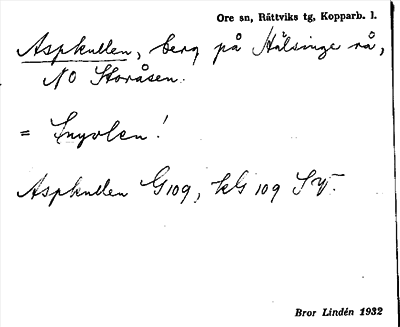 Ore sn, Rättviks tg, Kopparb. l.
Aspkullen, berg på Hälsinge rå,
NO Storåsen.
= !
Aspkullen G109, kG 109 SV.
Bror Lindén 1932